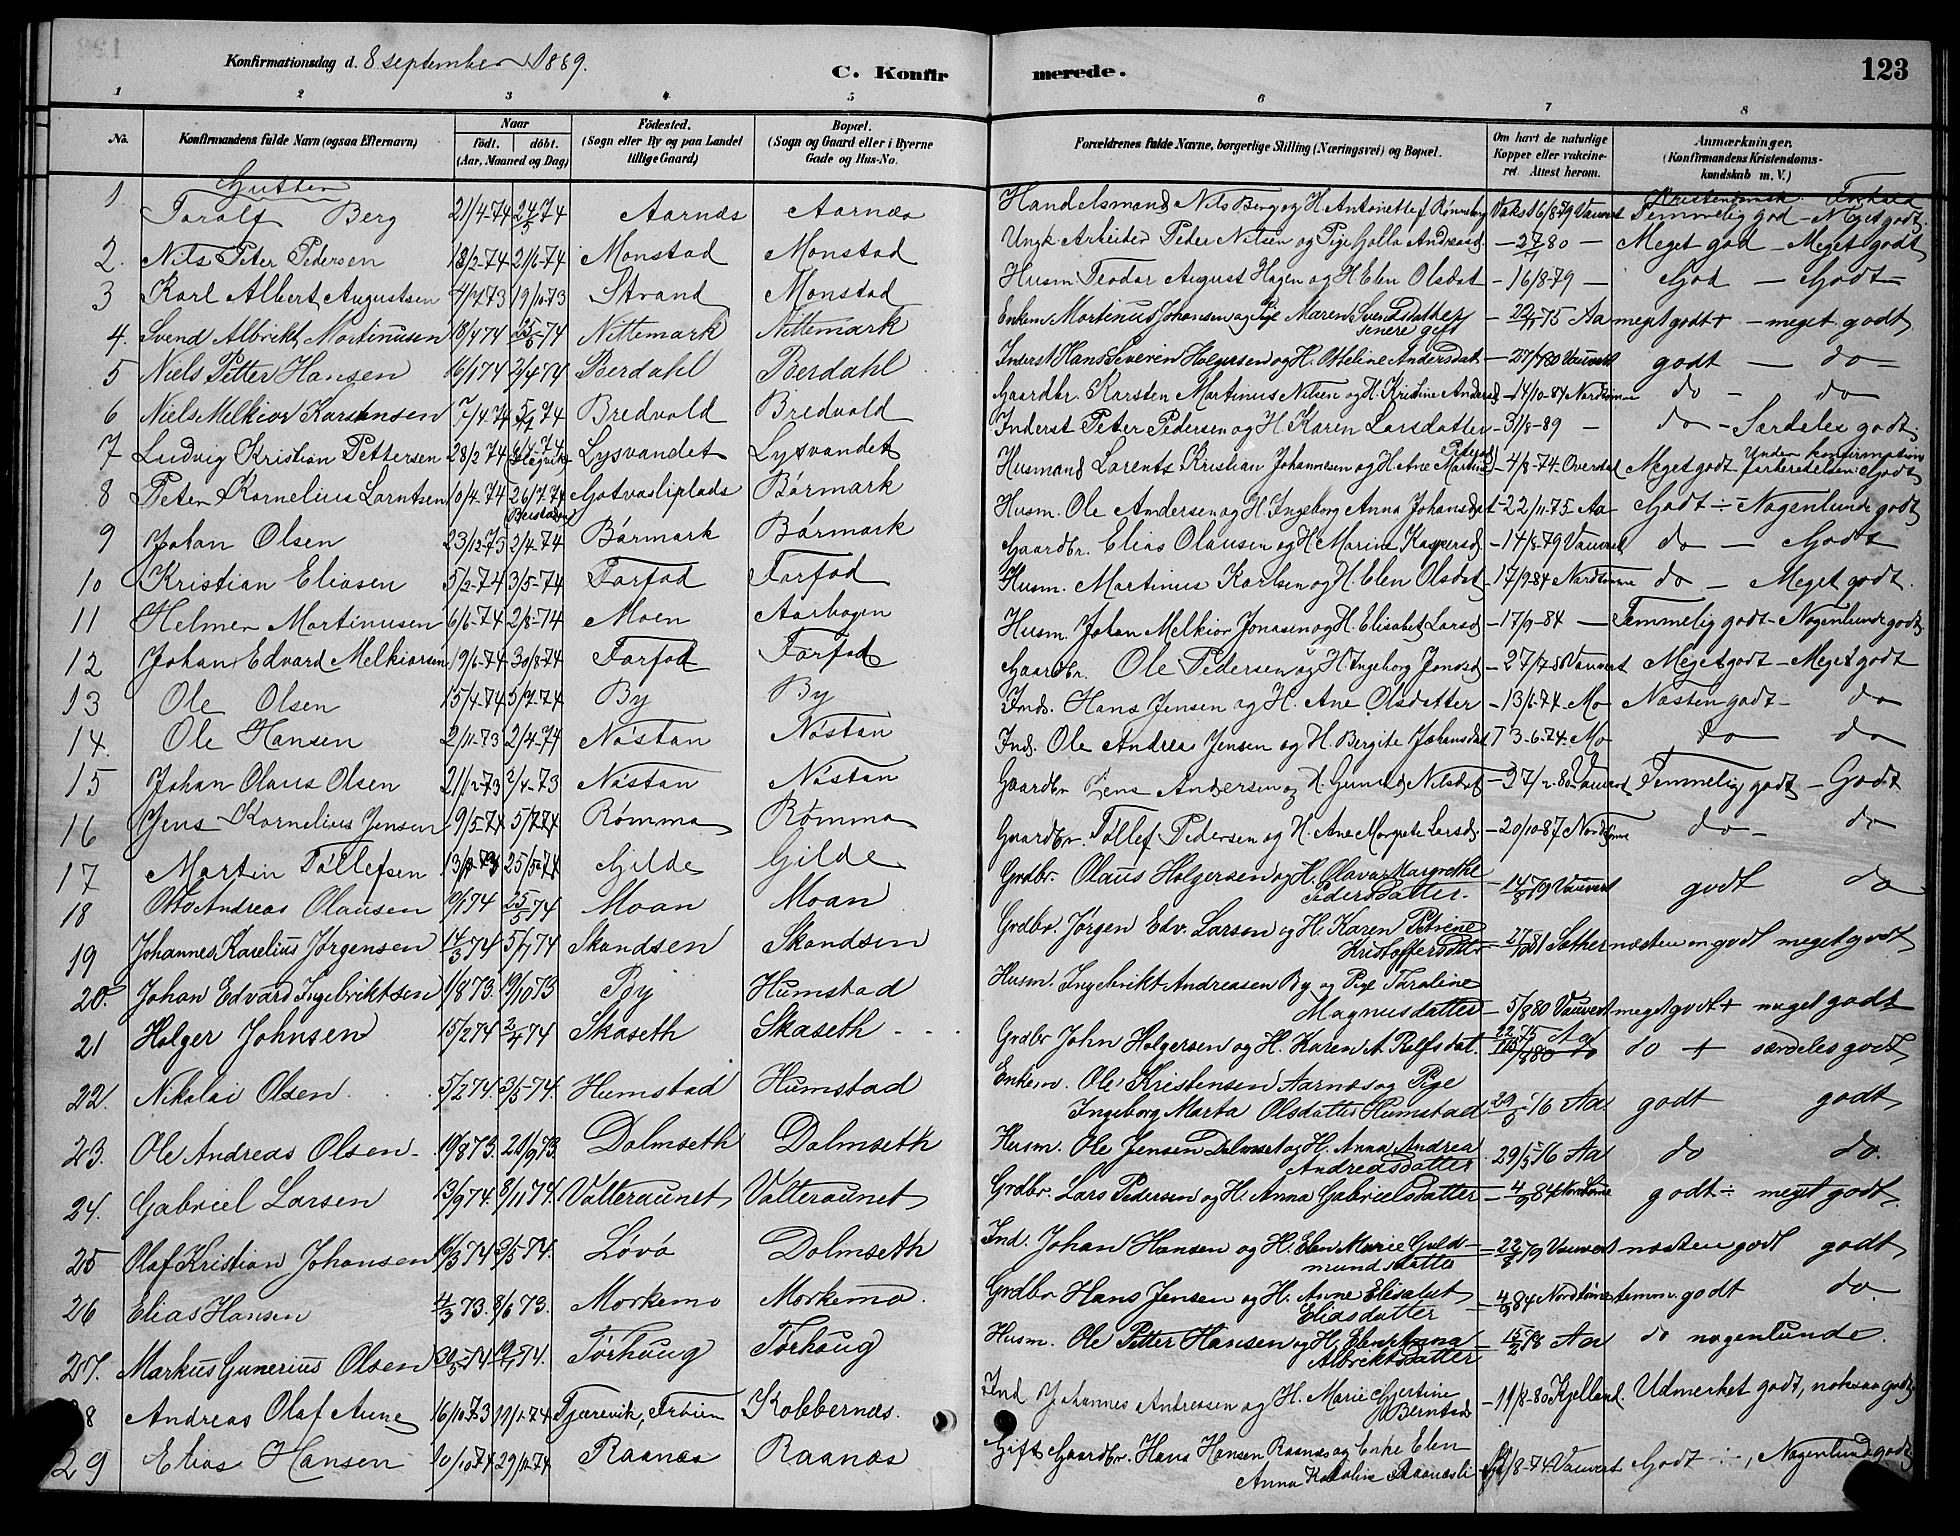 Konfirmationsdag d. 8 september 1889.
C. Konfirmerede.
123
1 2 3 4 5 6 7 8
No. Konfirmandens fulde Navn (ogsaa Efternavn) Naar født. døbt. (Aar, Maaned og Dag) Fødested. (Sogn eller By og paa Landet tillige Gaard) Bopæl. (Sogn og Gaard eller i Byerne Gade og Hus-No. Forældrenes fulde Navne, borgerlige Stilling (Næringsvei) og Bopæl. Om havt de naturlige Kopper eller vakcineret. Attest herom. Anmærkninger. (Konfirmandens Kristendomskundskab m. V.)
Gutter
Kristendomsk Forhold
1 Toralf Berg 21/4-74 24/5 74 Aarnæs Aarnæs Handelsmand Nils Berg og H. Antonette f. Rønneberg Vaks 16/8-79 Vauvert Temmelig god - Meget godt
2. Nils Peter Pedersen 18/2-74 21/6-74 Monstad Monstad Ungk Arbeider Peder Nilsen og Pige Golla Andreasd. Meget god - Meget godt
3 Karl Albert Augustsen 19/10-73 Strand Monstad Husm Teodor August Hagen og H. Elen Olsdat - 16/8-79 - God - Godt -
4. Svend Albrikt Martinusen 18/4 74 25/5-74 Nittemark Nittemark Enkem Martinus Johansen og Pige Maren Svendsdatter senere gift Aa meget godt + - meget godt
5 Niels Petter Hansen 16/1 74 2/4 74 Berdahl Berdahl Inderst Hans Severin Holgersen og H. Otteline Andersdat Vauvert godt - do -
6 Niels Melkior Karstensen 7/4 74 Bredvold Bredvold Gaardbr. Karsten Martinus Nilsen og H. Kristine Andersd - 14/10-84 Nordtømme do - do
7 Ludvig Kristian Pettersen 28/2 74 Lysvandet Lysvandet Inderst Peter Pedersen og H. Karen Larsdatter - 31/8-89 - do - Særdeles godt
8 Peter Kornelius Larntsen 10/4-74 26/7 74 Gotvasliplads Børmark Husmand Lorents Kristian Johannesen og H. Ane Martine - 4/8-74 Meget godt Under konfirmations forberedelsen: Godt
9 Johan Olsen 23/12-73 2/4-74 Børmark Børmark Husm. Ole Andersen og H. Ingeborg Anna Johansdat - 22/11-75 - Aa Godt ÷ - Nogenlunde godt
10 Kristian Eliasen 5/2-74 3/5-74 Forfod Forfod Gaardbr. Elias Olausen og H. Marine Kaspersd - 14/8-79 Vauvert do - Godt
11 Helmer Martinusen 6/6-74 2/8-74 Moen Aarbogen Husm. Martinus Karlsen og H. Elen Olsdat - 17/9-84 Nordtømme do - Meget godt.
12 Johan Edvard Melkiorsen 19/6-74 30/8-74 Forfod Forfod Husm. Johan Melkior Jonasen og H. Elisabet Larsd - 17/9-84 - Temmelig godt - Nogenlunde godt
13 Ole Olsen 15/4-74 5/7-74 By By Gaardbr. Ole Pedersen og H. Ingeborg Jensd. Vauvert Meget godt - Meget godt
14. Ole Hansen 2/11-73 2/4-74 Nøstan Nøstan Inds. Hans Jensen og H. Ane Olsdatter - 13/6-74 - Mo Næsten godt - do
15 Johan Olaus Olsen 21/12-73 2/4-73 Nøstan Nøstan Ind. Ole Andrea Jensen og H. Bergite Johansdat 13-6-74 - Mo do do
16 Jens Kornelius Jensen 19/5-74 5/7-74 Rømma Rømma Gaardbr Jens Andersen og H. Gunild Nilsdat Vauvert Temmelig godt - Godt
17 Martin Tøllefsen 25/5-74 Gilde Gilde Gaardbr. Tøllef Pedersen og H. Ane Margrete Larsd. - 20/10-87 Nordtømme do - do
18 Otto Andreas Olausen 25/5 74 Moan Moan Grdbr. Olaus Holgersen og H. Olava Margrethe Pedersdatter. - 14/8 79 Vauvert godt do
19 Johannes Karelius Jørgensen 14/3 74 5/7 74 Skandsen Skandsen Grdbr. Jørgen Edv. Larsen og H. Karen Petrine Kristoffersdatt Sæther næsten godt meget godt
20. Johan Edvard Ingebriktsen 1/8 73. 19/10 73 By Humstad Husm Ingebrikt Andreasen By og Pige Taraline Magnusdatter Vauvert meget godt + meget godt
21 Holger Johnsen 15/2 74 2/4 74 Skaseth Skaseth Grdbr John Holgersen og H. Karen A. Rolfsdat. Aa do + særdeles godt
22. Nikolai Olsen 5/2 74. 3/5-74. Humstad Humstad Enkem. Ole Kristensen Aarnæs og Pige Ingeborg Marta Olsdatter Humstad 29/5 76 Aa godt godt
23. Ole Andreas Olsen 19/8 73. 21/9 73. Dolmseth Dolmseth Husm. Ole Jensen Dolmset og H. Anna Andrea Andreasdatter 29/5 76 Aa do do.
24. Gabriel Larsen 13/9 74. 8/11 74. Valteraunet Valteraunet Grdbr. Lars Pedersen og H. Anna Gabrielsdatter - 4/9 84 Nordtømme godt ÷ meget godt.
25 Olaf Kristian Johansen 16/3 74 3/5-74. Løvø Dolmseth Ind. Johan Hansen og H. Elen Marie Guldmundsdatter 22/8 79 Vauvert næsten godt godt
26 Elias Hansen 4/3 73. 8/6 73. Morkemo Morkemo. Grdbr Hans Jensen og H. Anne Elisabet Eliasdatter - 4/9 84 Nordtømme temm. godt do.
27. Markus Gunerius Olsen 74. Tørhaug Tørhaug Husm. Ole Petter Hansen og H. Elen Anna Albrektsdatter Aa do nogenlunde.
28 Andreas Olaf Aune 16/10-73 11/1-74 Tjærevik, Kobbernæs. Ind Johannes Andreasen og H. Marie Gjertine Berntsd - 19/8-80 Kjelland. Udmerket godt, nokсаа godt
29 Elias Hansen 10/10-74 29/11-74 Raanæs Raanæs Gift Gaardbr. Hans Hansen Raanæs og Enke Elen Anna Raanæsli Vauvert Godt ÷, Nogenlunde godt